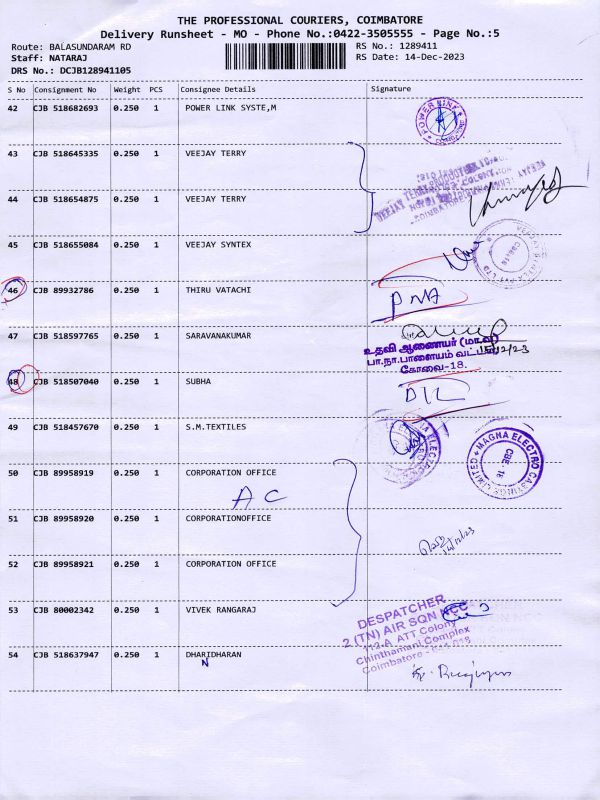 THE PROFESSIONAL COURIERS, COIMBATORE
Delivery Runsheet - MO - Phone No.:0422-3505555 - Page No.:5
Route: BALASUNDARAM RD
RS No.: 1289411
Staff: NATARAJ
RS Date: 14-Dec-2023
DRS No.: DCJB128941105
S No Consignment No Weight PCS Consignee Details Signature
42 CJB 518682693 0.250 1 POWER LINK SYSTE,M
POWER LINK
COIMBATORE
43 CJB 518645335 0.250 1 VEEJAY TERRY
44 CJB 518654875 0.250 1 VEEJAY TERRY
45 CJB 518655084 0.250 1 VEEJAY SYNTEX
CBE-18
46 CJB 89932786 0.250 1 THIRU VATACHI
PNA
47 CJB 518597765 0.250 1 SARAVANAKUMAR
உதவி ஆணையர் (மாவ)
பா.நா.பாளையம் வட்
15/12/23
கோவை-18.
48 CJB 518507040 0.250 1 SUBHA
D/L
49 CJB 518457670 0.250 1 S.M.TEXTILES
MAGNA ELECTRO CASTINGS LIMITED
CBE 18
50 CJB 89958919 0.250 1 CORPORATION OFFICE
A C
51 CJB 89958920 0.250 1 CORPORATIONOFFICE
52 CJB 89958921 0.250 1 CORPORATION OFFICE
53 CJB 80002342 0.250 1 VIVEK RANGARAJ
DESPATCHER
2 (TN) AIR SQN NCC
112-A ATT Colony
Chinthamani Complex
Coimbatore - 641 018
54 CJB 518637947 0.250 1 DHARIDHARAN
N